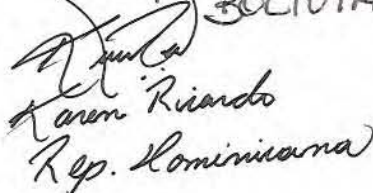 BOLIVIA
Karen Ricardo
Rep. Dominicana